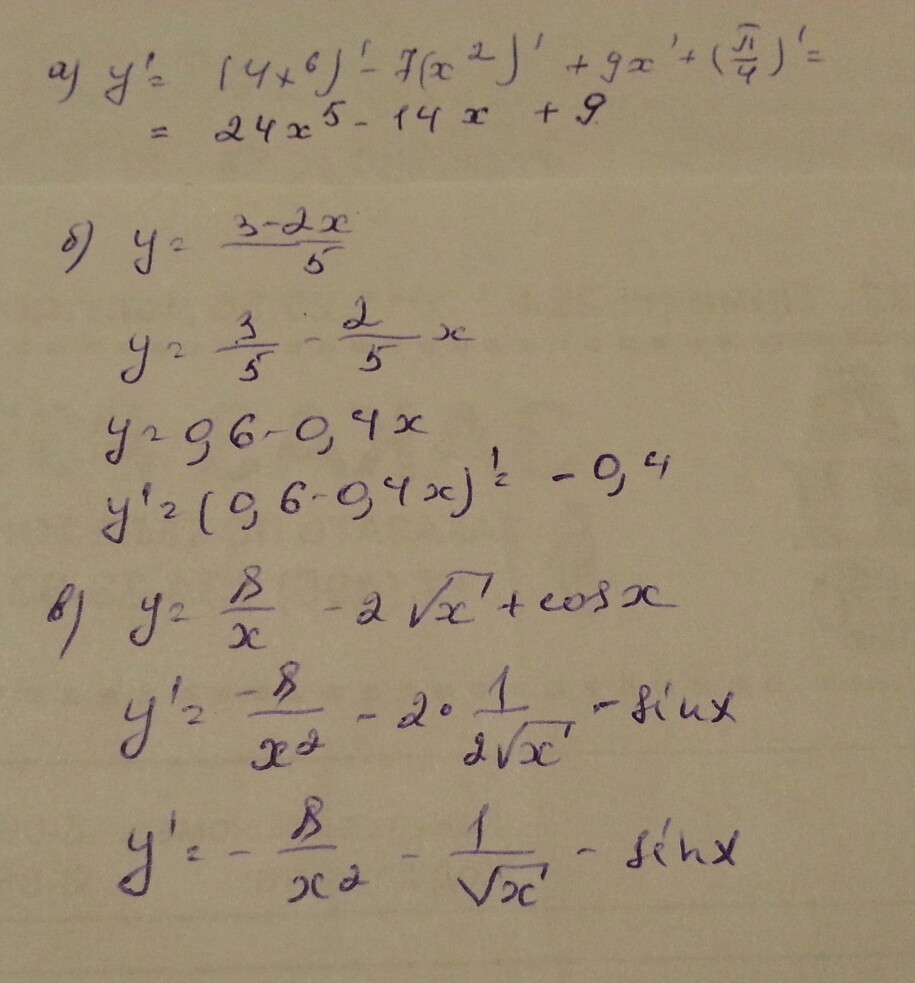 а) y' = (4x⁶)' - 7(x²)' + 9x' + (π/4)' =
= 24x⁵ - 14x + 9
б) y = (3-2x)/5
y = 3/5 - 2/5 x
y = 0,6 - 0,4x
y' = (0,6 - 0,4x)' = -0,4
в) y = 8/x - 2√x + cos x
y' = -8/x² - 2 · 1/(2√x) - sin x
y' = - 8/x² - 1/√x - sin x